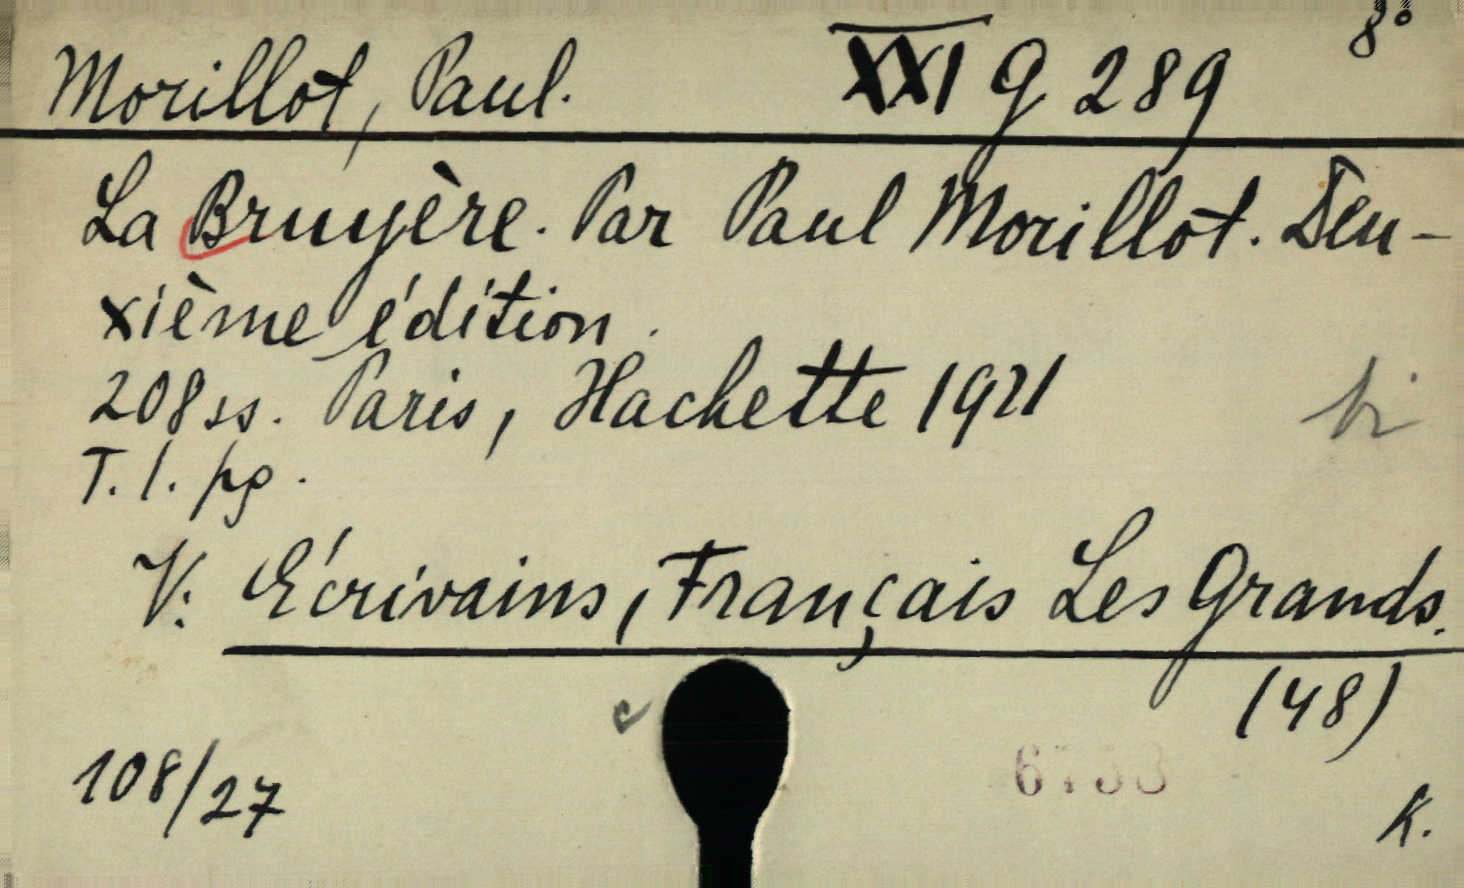 8°
Morillot, Paul. XXI G 289
La Bruyère. Par Paul Morillot. Deu-
xième édition.
208 ss. Paris, Hachette 1921
T. 1. pg.
V: Écrivains, Français Les Grands.
(48)
108/27
K.